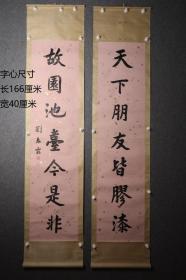 字心尺寸
长166厘米
宽40厘米
天下朋友皆膠漆
故園池臺今是非
劉春霖